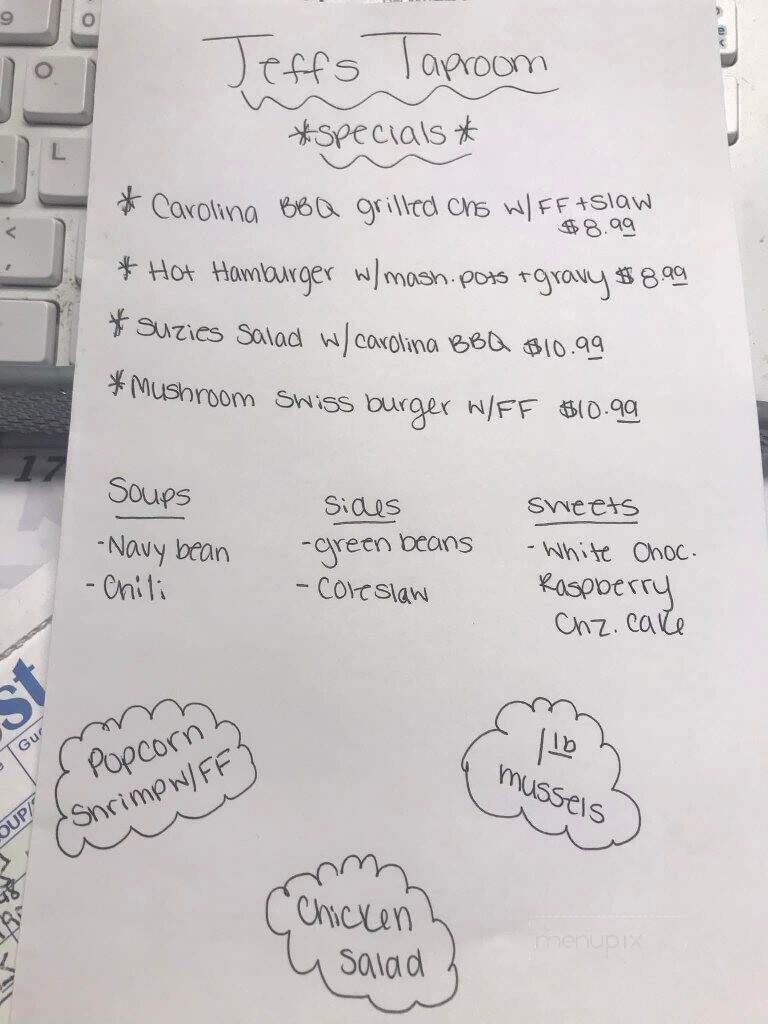 Jeffs Taproom
*specials*
* Carolina BBQ grilled chs w/FF + Slaw
$8.99
* Hot Hamburger w/mash.pots + gravy $8.99
* Suzies Salad w/carolina BBQ $10.99
* Mushroom swiss burger w/FF $10.99
Soups
- Navy bean
- Chili
Sides
- green beans
- Coleslaw
Sweets
- White Choc.
Raspberry
Chz. cake
Popcorn
Shrimp w/FF
1 lb
mussels
Chicken
Salad
menupix
9
O
O
L
<
,
17
st
Gue
OUP/